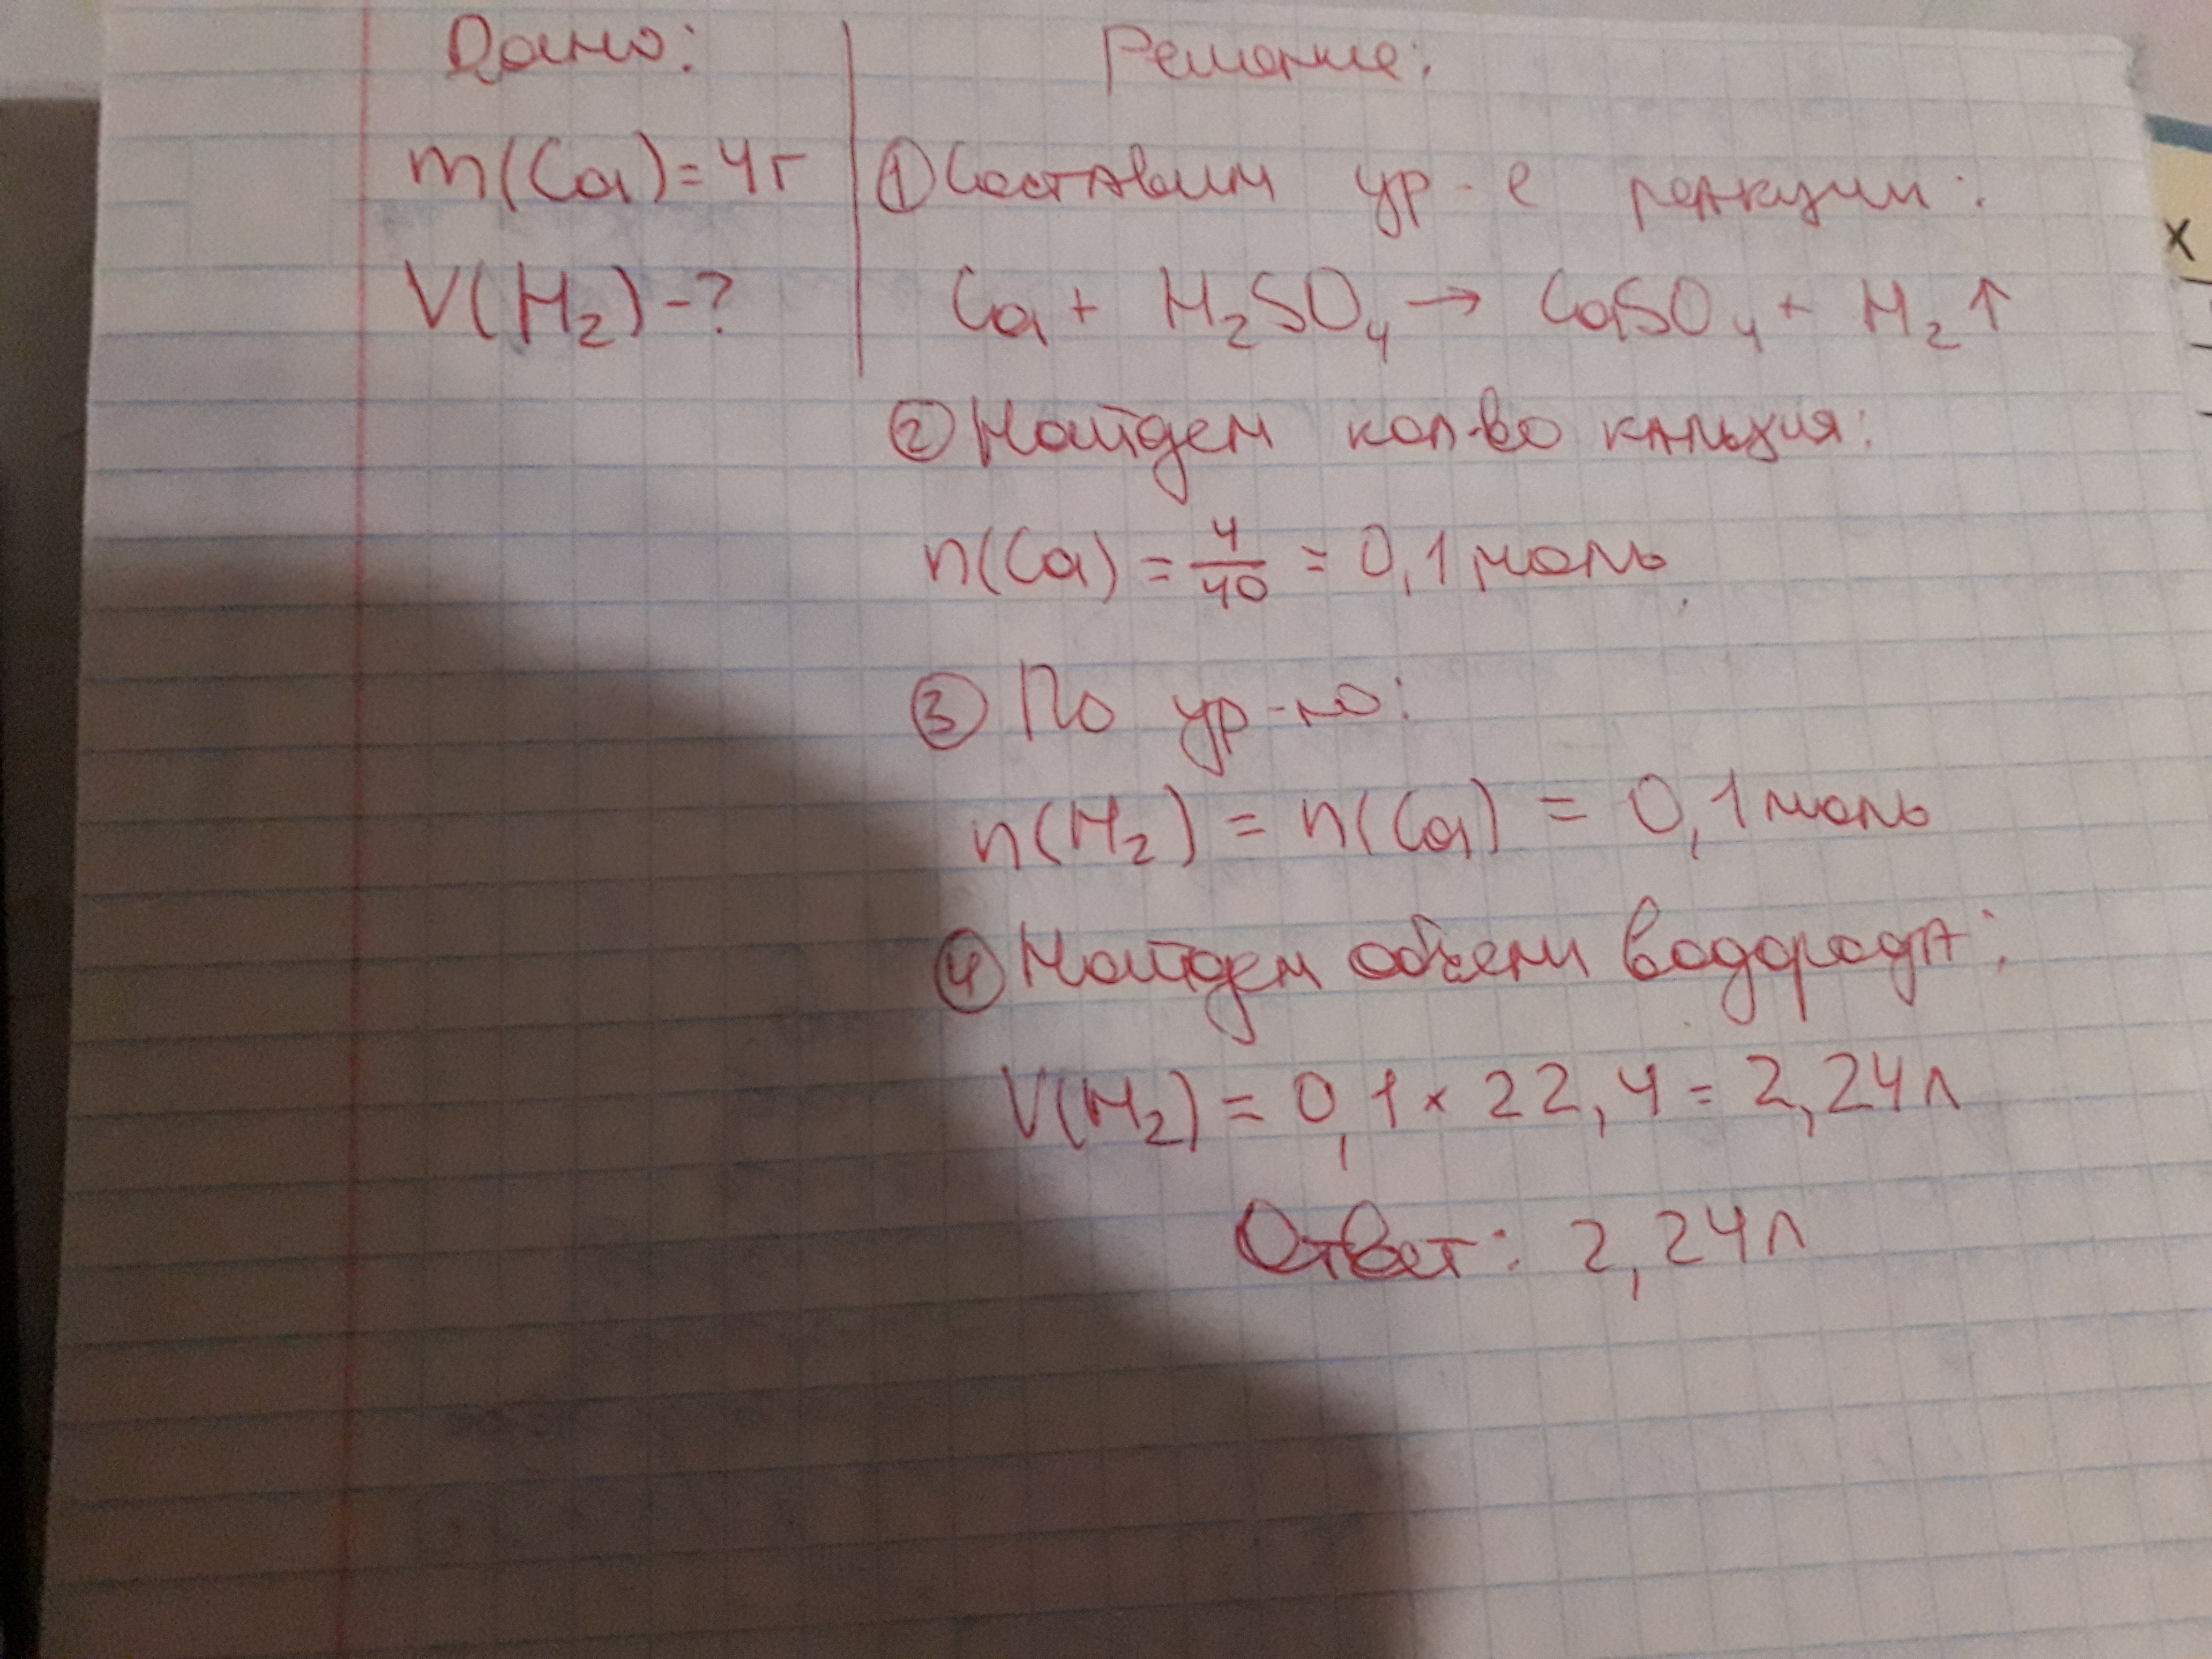 Дано:
m(Ca)=4г
V(H₂)-?
Решение:
① Составим ур-е реакции:
Ca + H₂SO₄ → CaSO₄ + H₂↑
② Найдем кол-во кальция:
n(Ca) = 4/40 = 0,1 моль
③ По ур-ю:
n(H₂) = n(Ca) = 0,1 моль
④ Найдем объем водорода:
V(H₂) = 0,1 × 22,4 = 2,24 л
Ответ: 2,24 л
x